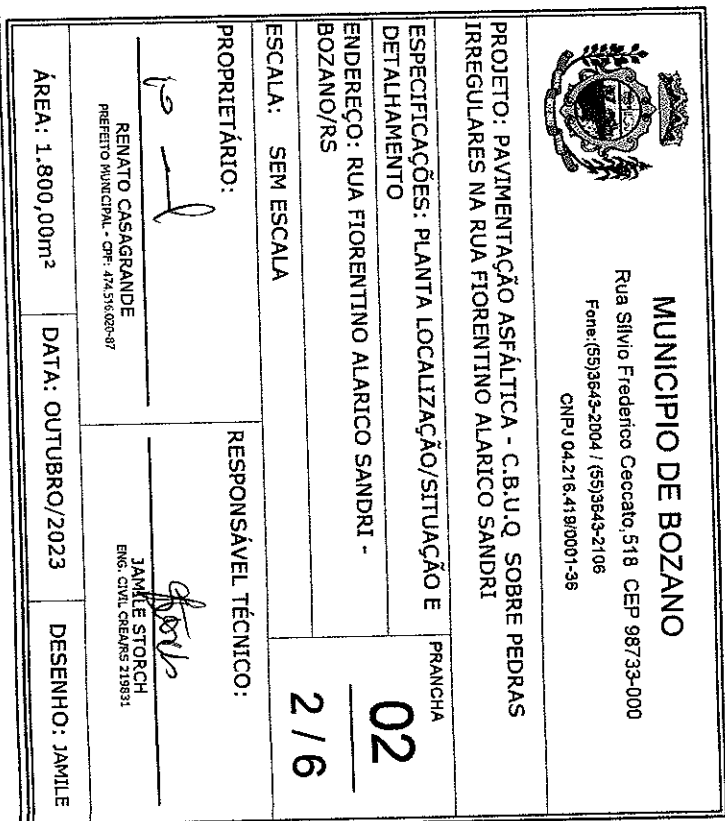 MUNICIPIO DE BOZANO
Rua Silvio Frederico Ceccato,518 CEP 98733-000
Fone:(55)3643-2004 / (55)3643-2106
CNPJ 04.216.419/0001-36
PROJETO: PAVIMENTAÇÃO ASFÁLTICA - C.B.U.Q SOBRE PEDRAS
IRREGULARES NA RUA FIORENTINO ALARICO SANDRI
ESPECIFICAÇÕES: PLANTA LOCALIZAÇÃO/SITUAÇÃO E
DETALHAMENTO
ENDEREÇO: RUA FIORENTINO ALARICO SANDRI -
BOZANO/RS
ESCALA: SEM ESCALA
PRANCHA
02
2 / 6
PROPRIETÁRIO:
RENATO CASAGRANDE
PREFEITO MUNICIPAL - CPF: 474.516.020-87
RESPONSÁVEL TÉCNICO:
JAMILE STORCH
ENG. CIVIL CREA/RS 219831
ÁREA: 1.800,00m²
DATA: OUTUBRO/2023
DESENHO: JAMILE